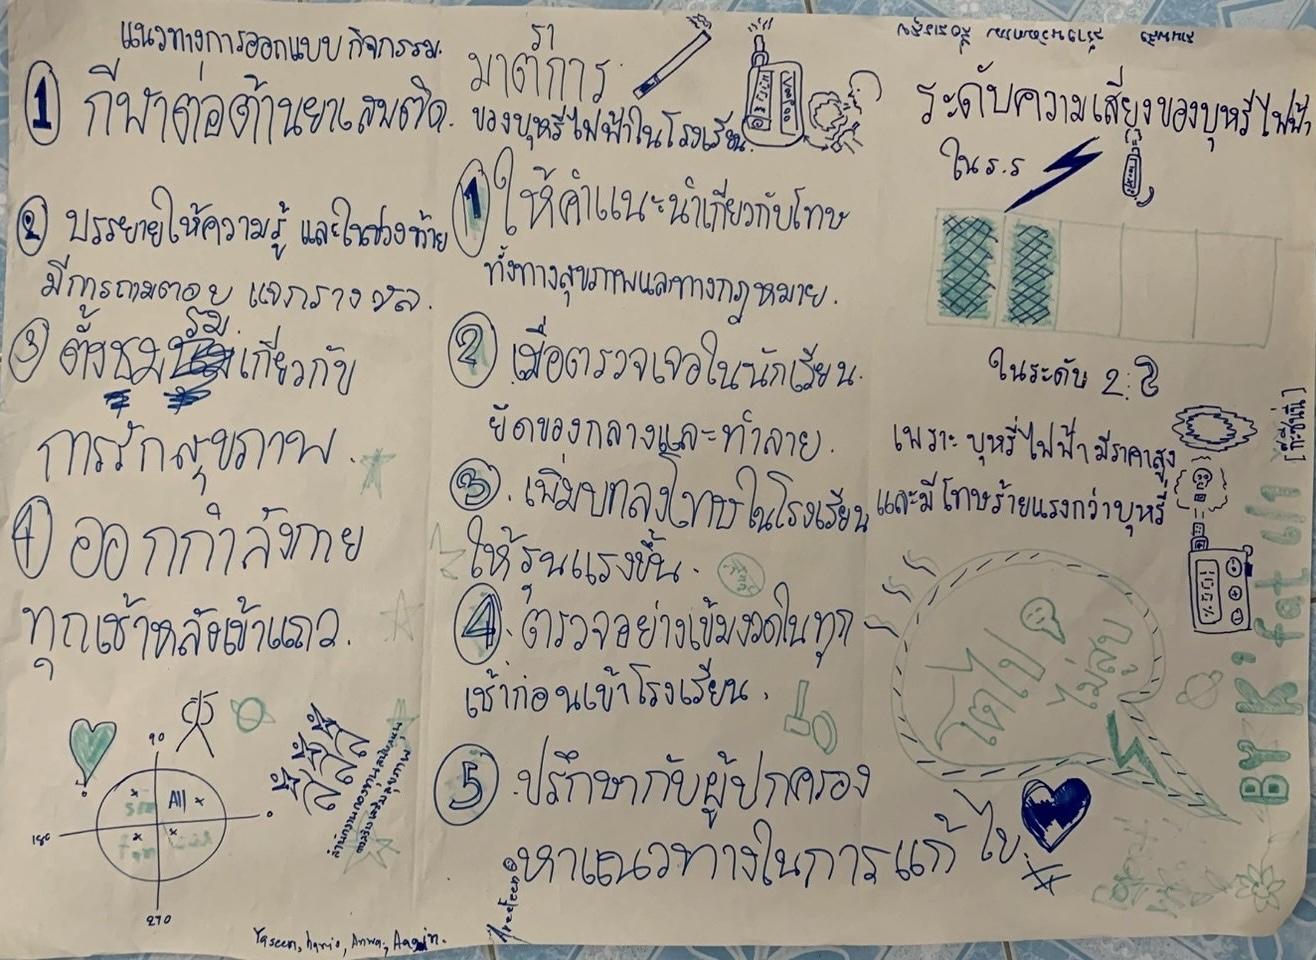 แนวทางการออกแบบกิจกรรม.
1 กีฬาต่อต้านยาเสพติด.
2 บรรยายให้ความรู้ และในช่วงท้าย
มีการถามตอบ แจกรางวัล.
3 ตั้งชมรม เกี่ยวกับ
การรักสุขภาพ.
4 ออกกำลังกาย
ทุกเช้าหลังเข้าแถว.
90
All
180
0
270
สสส
สำนักงานกองทุนสนับสนุน
การสร้างเสริมสุขภาพ
Yaseen,
รา
มาตการ
ของบุหรี่ไฟฟ้าในโรงเรียน
1 ให้คำแนะนำเกี่ยวกับโทษ
ทั้งทางสุขภาพและทางกฎหมาย.
2 เมื่อตรวจเจอในนักเรียน.
ยึดของกลางและทำลาย.
3. เพิ่มบทลงโทษในโรงเรียน
ให้รุนแรงขึ้น.
4. ตรวจอย่างเข้มงวดในทุก
เช้าก่อนเข้าโรงเรียน.
5 ปรึกษากับผู้ปกครอง
หาแนวทางในการแก้ไข.
ระดับความเสี่ยงของบุหรี่ไฟฟ้า
ใน ร.ร
ในระดับ 2:
เพราะ บุหรี่ไฟฟ้ามีราคาสูง
และมีโทษร้ายแรงกว่าบุหรี่
100%
เตไป
ไม่สูบ
BY K'fat 6/1